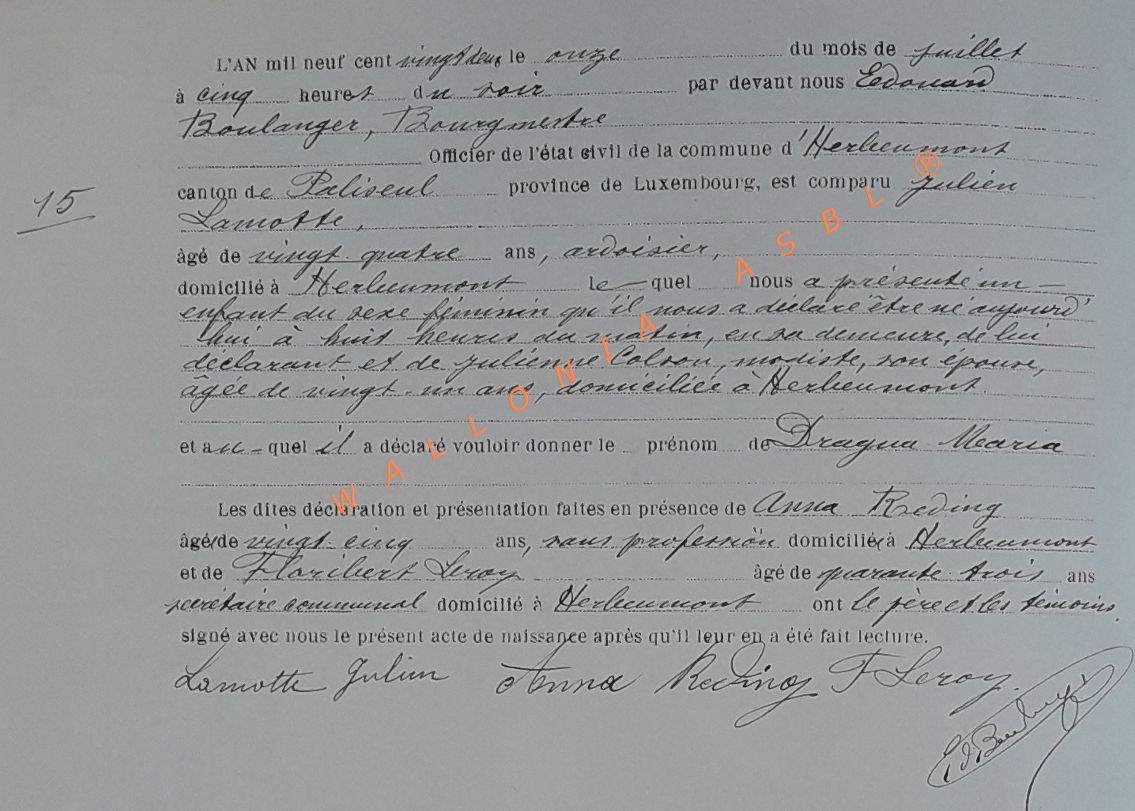 L'AN mil neuf cent vingt deux le onze du mois de juillet
à cinq heures du soir par devant nous Edouard
Boulanger, Bourgmestre
Officier de l'état civil de la commune d'Herbeumont
canton de Paliseul province de Luxembourg, est comparu Julien
15
Lamotte,
âgé de vingt quatre ans, ardoisier,
domicilié à Herbeumont le quel nous a présenté un
enfant du sexe féminin qu'il nous a déclaré être né aujourd'
hui à huit heures du matin, en sa demeure, de lui
déclarant et de Julienne Colson, modiste, son épouse,
âgée de vingt-un ans, domiciliée à Herbeumont.
et au-quel il a déclaré vouloir donner le prénom de Dragua Maria
Les dites déclaration et présentation faites en présence de Anna Reding
âgée de vingt cinq ans, sans profession domiciliée à Herbeumont
et de Floribert Leroy âgé de quarante trois ans
secrétaire communal domicilié à Herbeumont ont le père et les témoins
signé avec nous le présent acte de naissance après qu'il leur en a été fait lecture.
Lamotte Julien Anna Reding F Leroy.
Ed Boulanger
WALLONIA ASBL ®